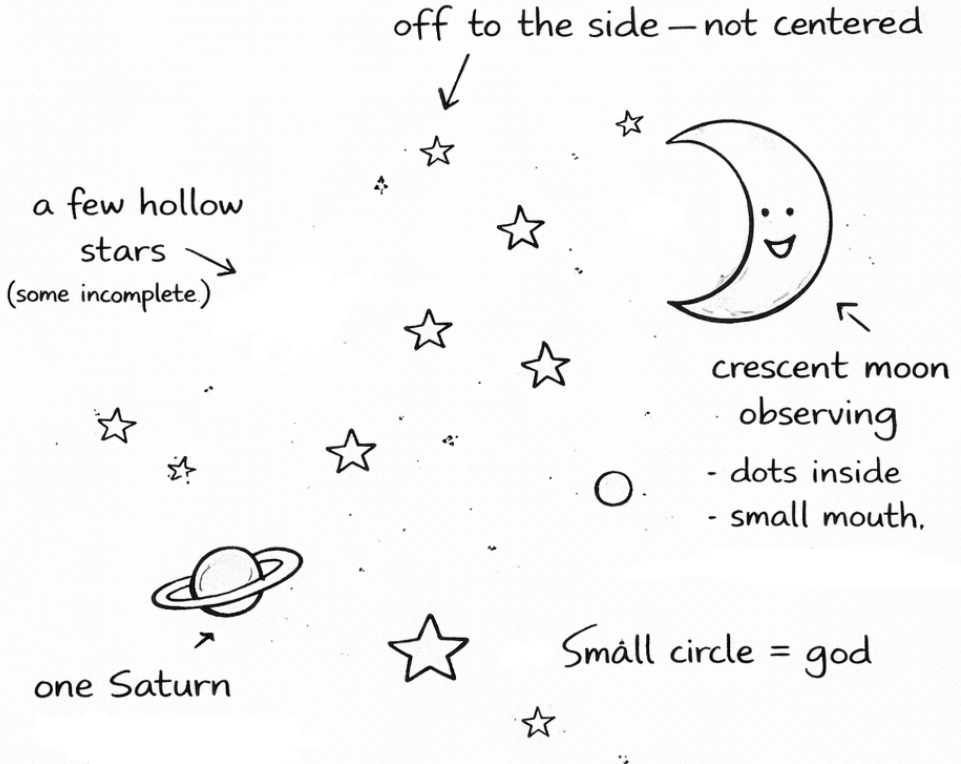 off to the side — not centered
a few hollow
stars
(some incomplete)
crescent moon
observing
- dots inside
- small mouth.
Small circle = god
one Saturn